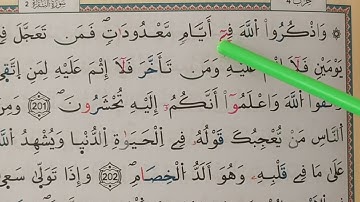 سورة البقرة 2
وَاذْكُرُوا اللّٰهَ فِىٓ اَيَّامٍ مَّعْدُودَاتٍ فَمَنْ تَعَجَّلَ فِى
يَوْمَيْنِ فَلَآ اِثْمَ عَلَيْهِ وَمَنْ تَاَخَّرَ فَلَآ اِثْمَ عَلَيْهِ لِمَنِ اتَّقٰى
وَاتَّقُوا اللّٰهَ وَاعْلَمُوٓا اَنَّكُمْ اِلَيْهِ تُحْشَرُونَ (201)
النَّاسِ مَنْ يُعْجِبُكَ قَوْلُهُ فِى الْحَيٰوةِ الدُّنْيَا وَيُشْهِدُ اللّٰهَ
عَلٰى مَا فِى قَلْبِهٖ وَهُوَ اَلَدُّ الْخِصَامِ (202) وَاِذَا تَوَلّٰى سَعٰى